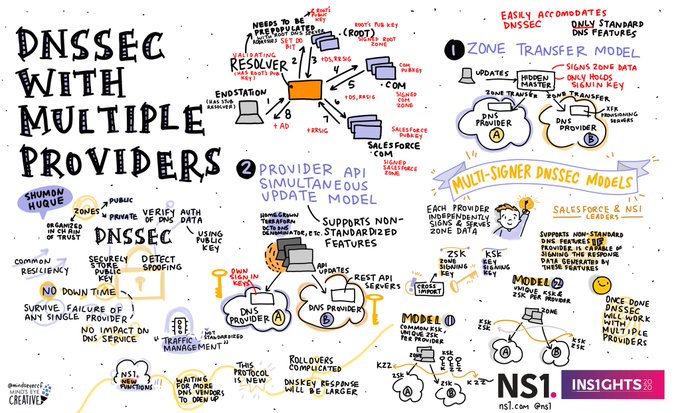 DNSSEC
WITH
MULTIPLE
PROVIDERS
SHUMON
HUQUE
ZONES
PUBLIC
PRIVATE
ORGANIZED
IN CHAIN
OF TRUST
DNSSEC
VERIFY
OF DNS
AUTH
DATA
USING
PUBLIC
KEY
SECURELY
STORE
PUBLIC
KEY
DETECT
SPOOFING
COMMON
RESILIENCY
NO DOWN TIME
SURVIVE FAILURE OF
ANY SINGLE PROVIDER
NO IMPACT ON
DNS SERVICE
"TRAFFIC
MANAGEMENT"
NOT STANDARDIZED
NEEDS TO BE
PREPOPULATED
WITH ROOT DNS SERVER
ADDRESSES
ROOT'S
PUBLIC
KEY
SET DO
BIT
VALIDATING
RESOLVER
(HAS ROOT'S PUB
KEY)
ENDSTATION
(HAS STUB
RESOLVER)
1
2
3
4
5
6
7
8
+ AD
+RRSIG
+DS,RRSIG
+DS, RRSIG
ROOT'S PUB KEY
(ROOT)
SIGNED
ROOT
ZONE
.COM
COM
PUBKEY
SIGNED
COM
ZONE
SALESFORCE
PUBKEY
SALESFORCE
.COM
SIGNED
SALESFORCE
ZONE
EASILY ACCOMODATES
DNSSEC
ONLY STANDARD
DNS FEATURES
1 ZONE TRANSFER MODEL
UPDATES
HIDDEN
MASTER
SIGNS ZONE DATA
ONLY HOLDS
SIGNIN KEY
ZONE TRANSFER
ZONE TRANSFER
DNS
PROVIDER
A
DNS
PROVIDER
B
XFR
PROVISIONING
SERVERS
2 PROVIDER API
SIMULTANEOUS
UPDATE MODEL
HOMEGROWN
TERRAFORM
OCTO DNS
DENOMINATOR, ETC.
SUPPORTS NON-
STANDARDIZED
FEATURES
API
UPDATES
OWN
SIGN IN
KEYS
REST API
SERVERS
DNS
PROVIDER
A
DNS
PROVIDER
B
MULTI-SIGNER DNSSEC MODELS
EACH PROVIDER
INDEPENDENTLY
SIGNS & SERVES
ZONE DATA
SALESFORCE & NS1
LEADERS
SUPPORTS NON-STANDARD
DNS FEATURES IF
PROVIDER IS CAPABLE OF
SIGNING THE RESPONSE
DATA GENERATED BY
THESE FEATURES
ZSK
ZONE
SIGNING
KEY
KSK
KEY
SIGNING
KEY
CROSS
IMPORT
MODEL 1
COMMON KSK,
UNIQUE ZSK
PER PROVIDER
ZONE
A
B
ZSK
ZSK
MODEL 2
UNIQUE KSK &
ZSK PER PROVIDER
ZONE
KSK
ZSK
KSK
ZSK
A
B
ONCE DONE
DNSSEC
WILL WORK
WITH
MULTIPLE
PROVIDERS
@mindseyeccf
MIND'S EYE
CREATIVE
NS1.
NEW
FUNCTIONS
WAITING FOR
MORE DNS VENDORS
TO OPEN UP
THIS
PROTOCOL
IS NEW
ROLLOVERS
COMPLICATED
DNSKEY RESPONSE
WILL BE LARGER
NS1.
INS1GHTS
2020
ns1.com @ns1